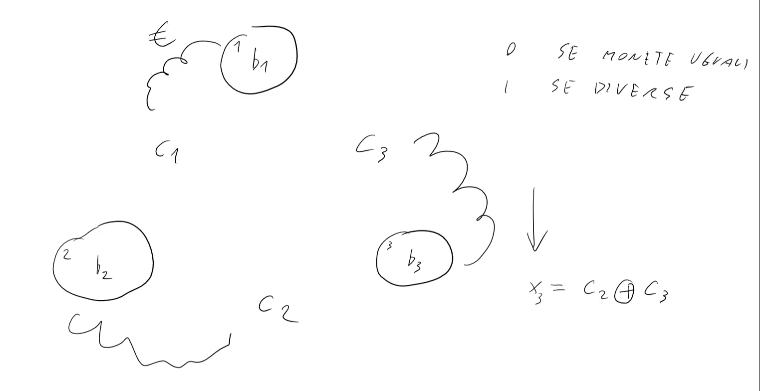 €
1 b1
0 SE MONETE UGUALI
1 SE DIVERSE
C1
C3
2 b2
3 b3
C2
x3 = C2 ⊕ C3